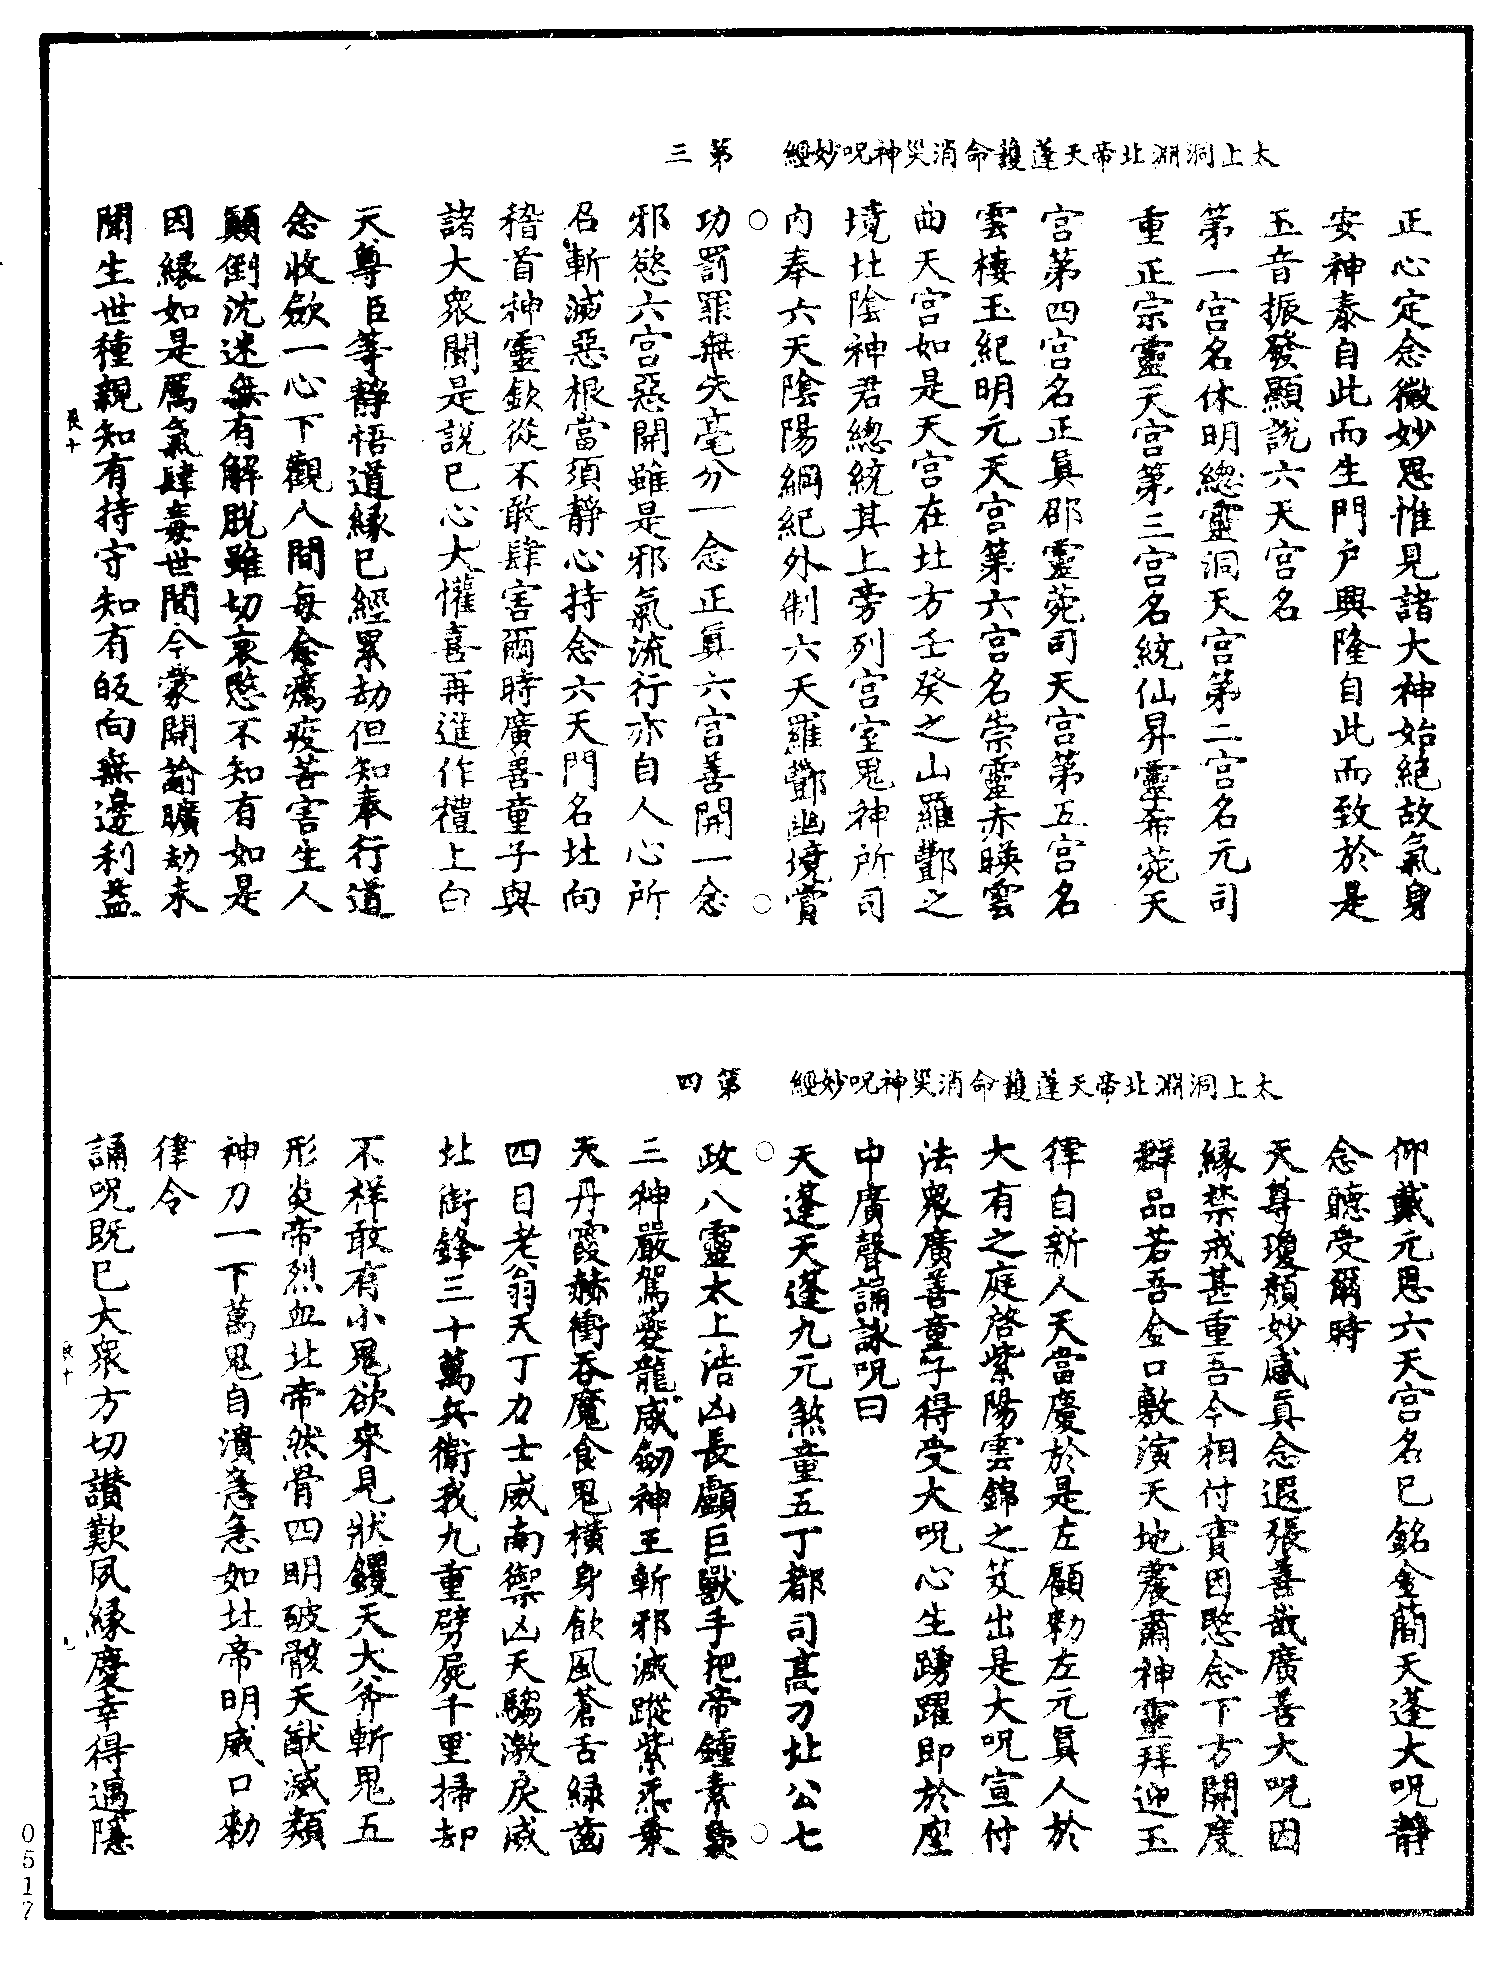 太上洞淵北帝天蓬護命消災神呪妙經　第三
正心定念微妙思惟見諸大神始絕故氣身
安神泰自此而生門戶興隆自此而致於是
玉音振發顯說六天宮名
第一宮名休明總靈洞天宮第二宮名元司
重正宗靈天宮第三宮名統仙昇靈希菀天
宮第四宮名正眞郡靈菀司天宮第五宮名
雲棲玉紀明元天宮第六宮名崇靈赤暎雲
曲天宮如是天宮在北方壬癸之山羅酆之
境北陰神君總統其上旁列宮室鬼神所司
內奉六天陰陽綱紀外制六天羅酆幽境賞
○
○
功罰罪無失毫分一念正眞六宮善開一念
邪慾六宮惡開雖是邪氣流行亦自人心所
召斬滅惡根當須靜心持念六天門名北向
稽首神靈欽從不敢肆害爾時廣善童子與
諸大衆聞是說已心大懽喜再進作禮上白
天尊臣等靜悟道緣已經累劫但知奉行道
念收斂一心下觀人間每念癘疫苦害生人
顛倒沈迷無有解脫雖切哀愍不知有如是
因緣如是厲氣肆毒世間今蒙開諭曠劫未
聞生世種親知有持守知有皈向無邊利益
太上洞淵北帝天蓬護命消災神呪妙經　第四
仰戴元恩六天宮名已銘金簡天蓬大呪靜
念聽受爾時
天尊瓊顏妙感眞念遐張善哉廣善大呪因
緣禁戒甚重吾今相付實因愍念下方開度
群品若吾金口敷演天地震肅神靈拜迎玉
律自新人天當慶於是左顧勑左元眞人於
大有之庭啓紫陽雲錦之笈出是大呪宣付
法衆廣善童子得受大呪心生踴躍即於座
中廣聲誦詠呪曰
天蓬天蓬九元煞童五丁都司高刀北公七
○
○
政八靈太上浩凶長顱巨獸手把帝鍾素梟
三神嚴駕夔龍威劒神王斬邪滅蹤紫炁乗
天丹霞赫衝吞魔食鬼橫身飲風蒼舌綠齒
四目老翁天丁力士威南禦凶天騶激戾威
北銜鋒三十萬兵衛我九重劈屍千里掃却
不祥敢有小鬼欲來見狀钁天大斧斬鬼五
形炎帝烈血北帝然骨四明破骸天猷滅類
神刀一下萬鬼自潰急急如北帝明威口勑
律令
誦呪既已大衆方切讚歎夙緣慶幸得遇隱
0517